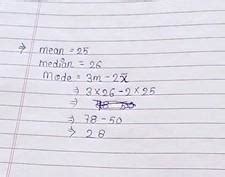 ⇒ mean = 25
median = 26
Mode = 3m - 2x̄
⇒ 3×26 - 2×25
⇒ 78 - 50
⇒ 78 - 50
⇒ 28